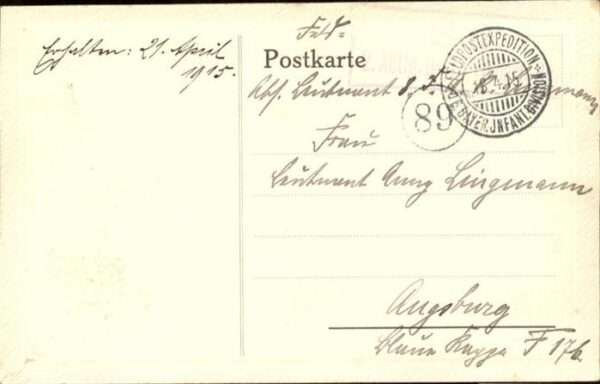 Erhalten: 21. April
1915.
Feld-
Postkarte
Abs. Leutnant d. R. Lingmann
FELDPOSTEXPEDITION
BAYER. INFANT. DIVISION
89
Frau
Leutnant Anny Lingmann
Augsburg
Blaue Kappe F 176